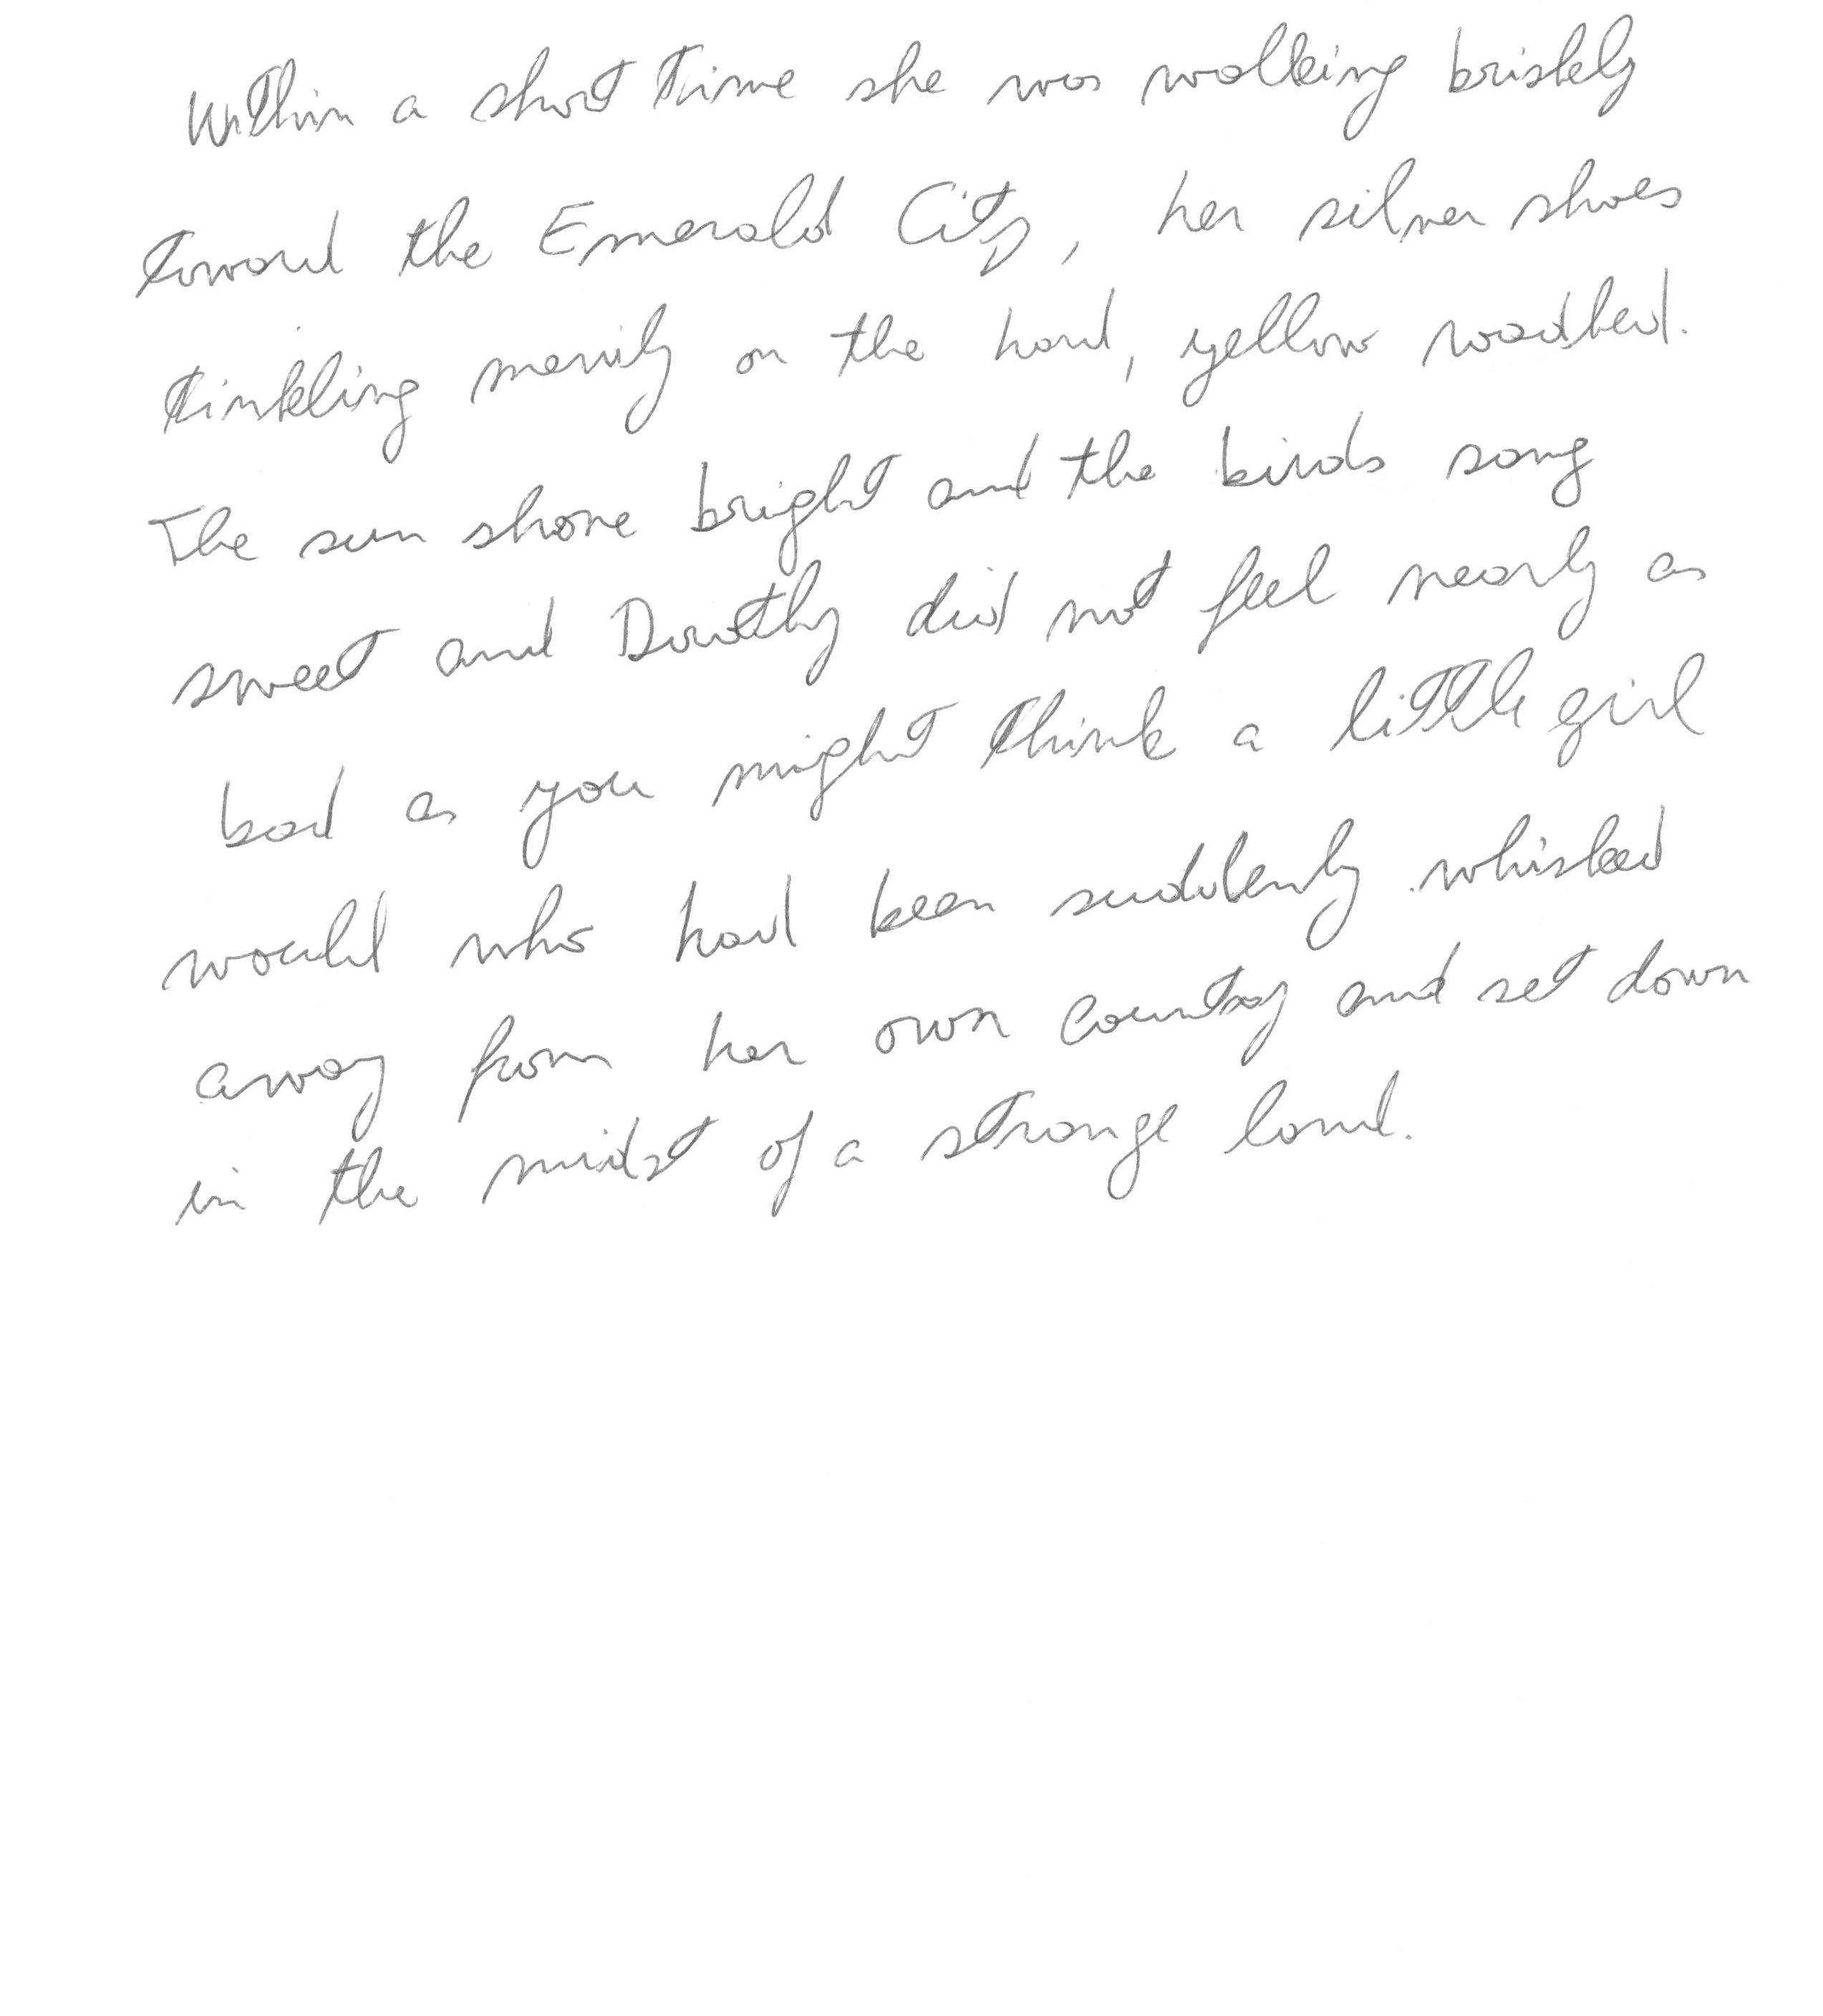 Within a short time she was walking briskly
toward the Emerald City, her silver shoes
tinkling merrily on the hard, yellow roadbed.
The sun shone bright and the birds sang
sweet and Dorothy did not feel nearly as
bad as you might think a little girl
would who had been suddenly whisked
away from her own country and set down
in the midst of a strange land.